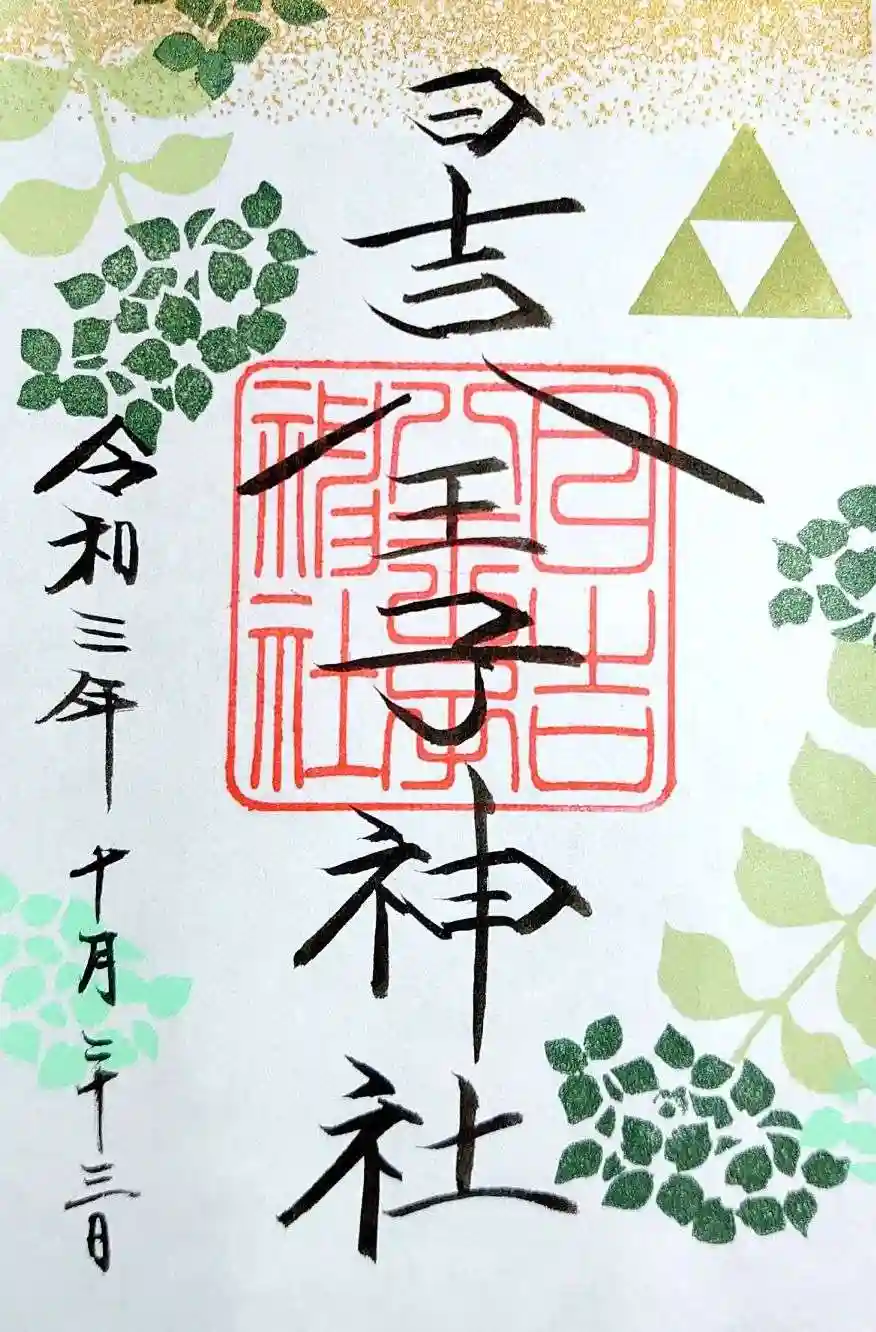 日吉八王子神社
日吉
八王子
神社
令和三年十月二十三日